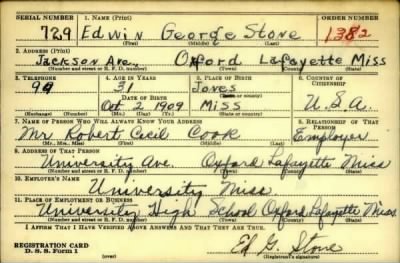 SERIAL NUMBER 1. NAME (Print) ORDER NUMBER
729 Edwin George Stone 1382
(First) (Middle) (Last)
2. ADDRESS (Print)
Jackson Ave. Oxford Lafayette Miss
(Number and street or R. F. D. number) (Town) (County) (State)
3. TELEPHONE 4. AGE IN YEARS 5. PLACE OF BIRTH 6. COUNTRY OF CITIZENSHIP
99 31 Jones
DATE OF BIRTH (Town or county)
Oct 2 1909 Miss U.S.A.
(Exchange) (Number) (Mo.) (Day) (Yr.) (State or country)
7. NAME OF PERSON WHO WILL ALWAYS KNOW YOUR ADDRESS 8. RELATIONSHIP OF THAT PERSON
Mr Robert Cecil Cook Employer
(Mr., Mrs., Miss) (First) (Middle) (Last)
9. ADDRESS OF THAT PERSON
University Ave. Oxford Lafayette Miss
(Number and street or R. F. D. number) (Town) (County) (State)
10. EMPLOYER'S NAME
University Miss.
11. PLACE OF EMPLOYMENT OR BUSINESS
University High School Oxford Lafayette Miss.
(Number and street or R. F. D. number) (Town) (County) (State)
I AFFIRM THAT I HAVE VERIFIED ABOVE ANSWERS AND THAT THEY ARE TRUE.
REGISTRATION CARD Ed G. Stone
D. S. S. Form 1 (Registrant's signature)